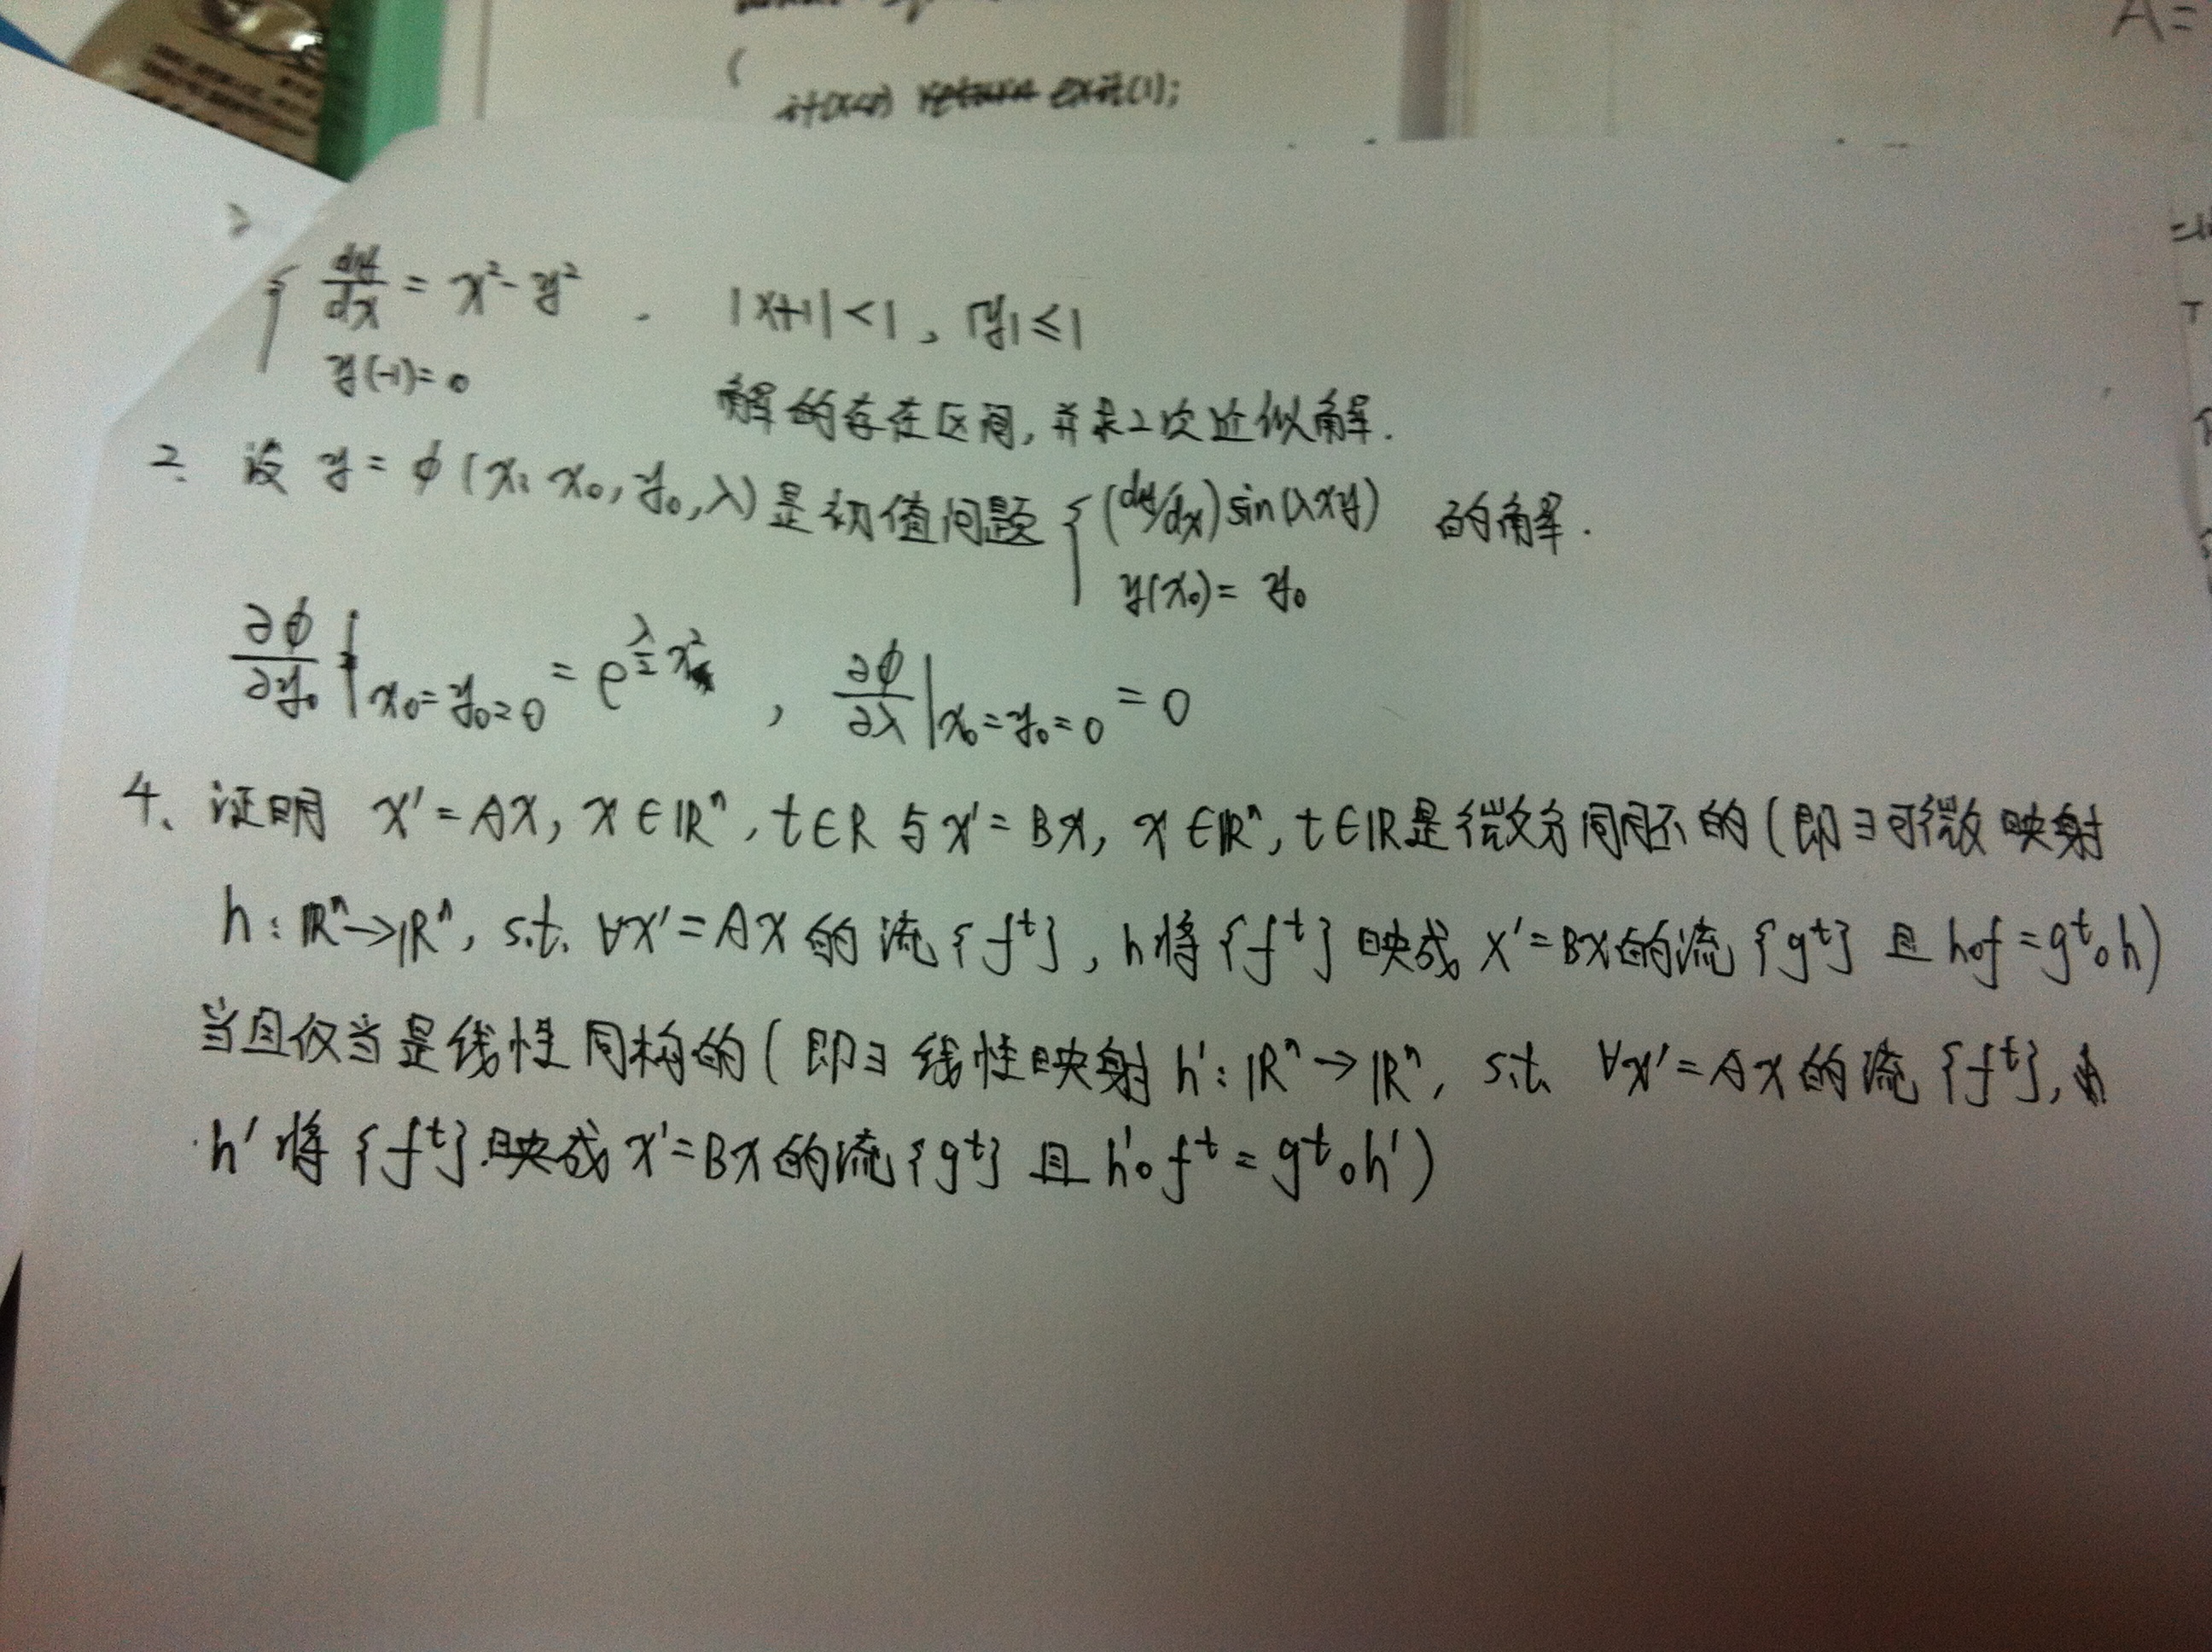 A=
(
if(x<0) return exit(1);
{ dy/dx = x² - y² . |x+1| < 1 , |y| ≤ 1
y(-1) = 0
解的存在区间, 并求2次近似解.
2. 设 y = φ(x; x₀, y₀, λ) 是初值问题 { (dy/dx) sin(λxy) 的解.
y(x₀) = y₀
∂φ/∂y₀ |x₀=y₀=0 = e^{λ/2 x²} , ∂φ/∂λ |x₀=y₀=0 = 0
4. 证明 x' = Ax, x∈ℝⁿ, t∈R 与 x' = Bx, x∈ℝⁿ, t∈ℝ 是微分同胚的 (即∃可微映射
h: ℝⁿ→ℝⁿ, s.t. ∀x' = Ax 的流 {fᵗ}, h将{fᵗ} 映成 x' = Bx的流 {gᵗ} 且 h∘f = gᵗ∘h)
当且仅当是线性同构的 (即∃线性映射 h': ℝⁿ→ℝⁿ, s.t. ∀x' = Ax 的流 {fᵗ},
h' 将 {fᵗ} 映成 x' = Bx 的流 {gᵗ} 且 h'∘fᵗ = gᵗ∘h')